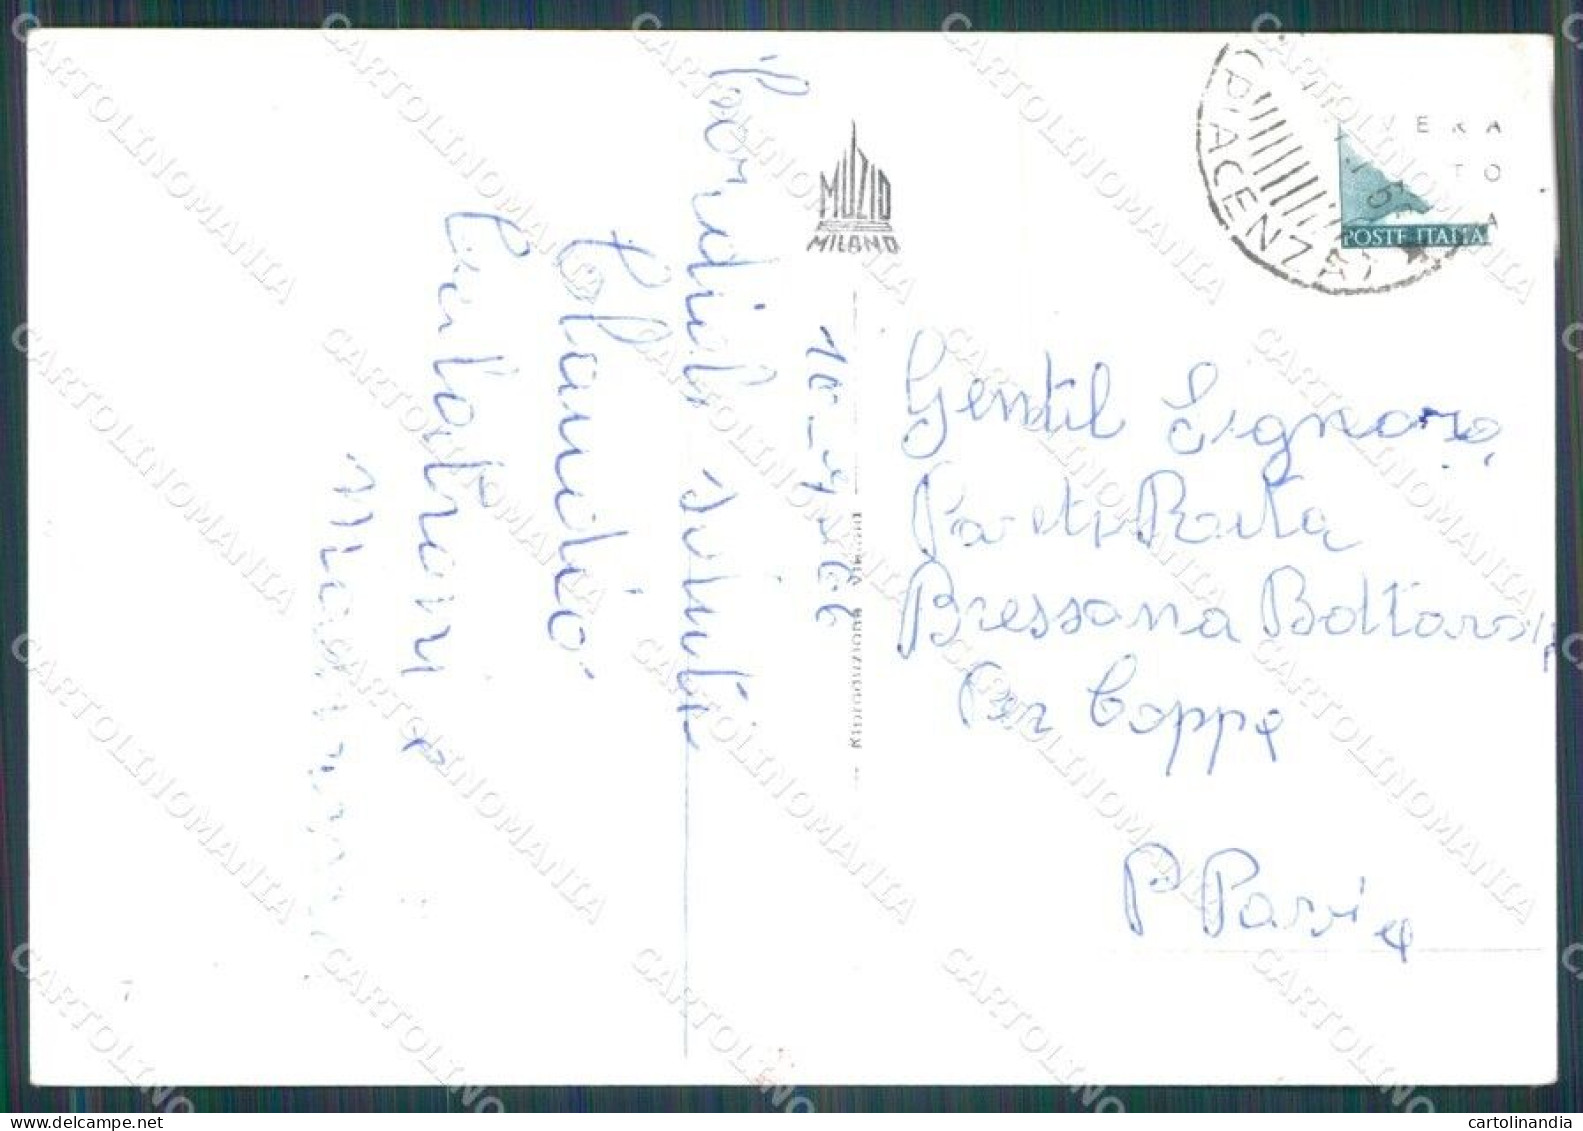 Cordiali saluti
Claudio
10-9-66
MUZIO
MILANO
Riproduzione vietata
PIACENZA
VERA
TO
A
POSTE ITALIA
Gentil Signora
Rita
Bressana Bottarone
Per Coppe
P Pavia
CARTOLINOMANIA
cartolinandia